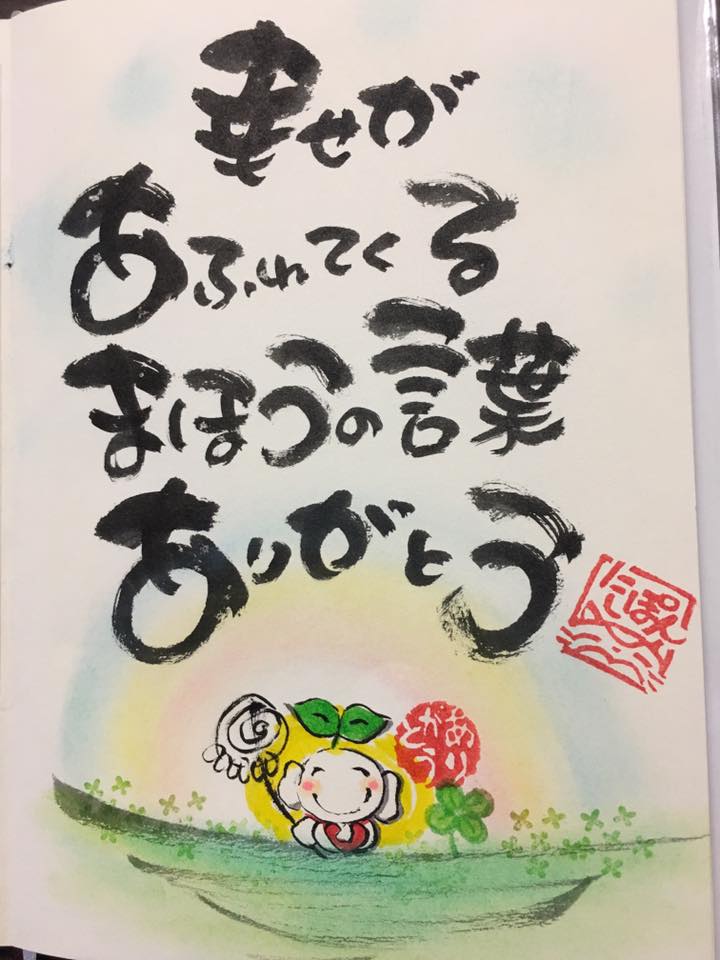 幸せが
あふれてくる
まほうの言葉
ありがとう
にしぽん
ありがとう